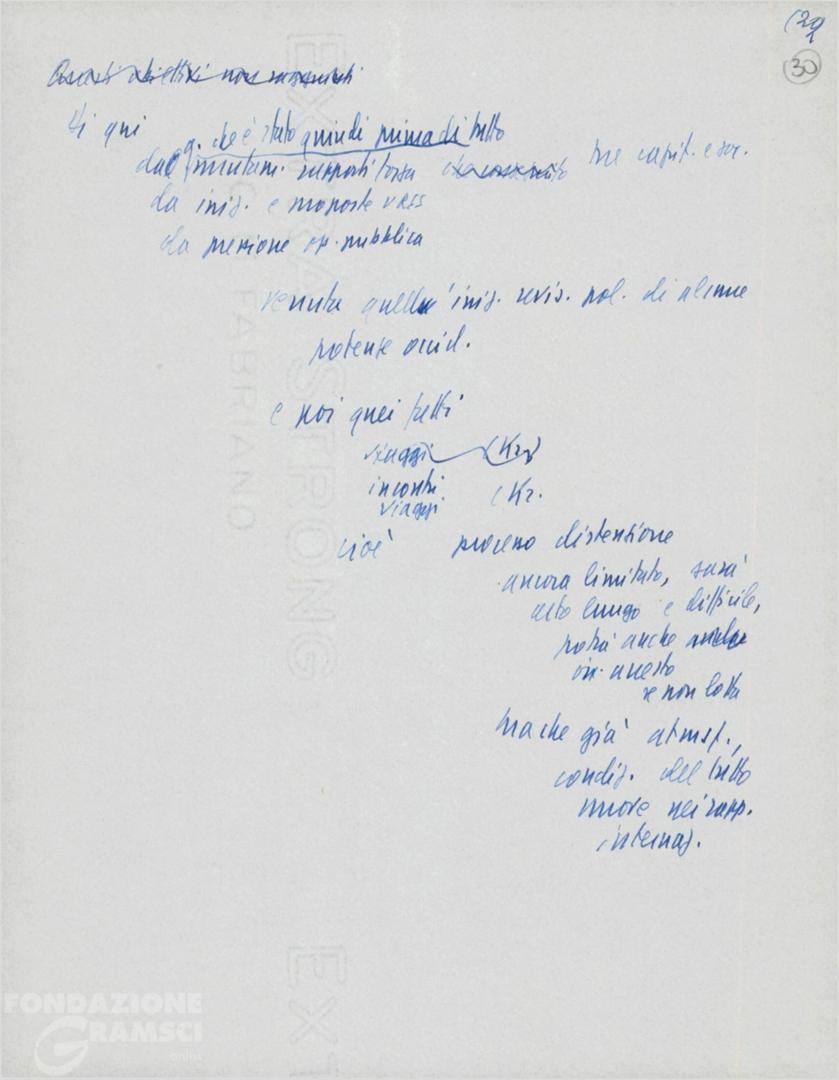 (29
30
Questi obiettivi non
Di qui
che è stato quindi prima di tutto
dal mutam. rapporti forza tra capit. e soc.
da iniz. e proposte URSS
da pressione op. pubblica
venuta quella iniz. revis. pol. di alcune
potenze occid.
e poi quei fatti
viaggi (Kr)
incontri (Kr.
viaggi
cioè processo distensione
ancora limitato, sarà
lungo e difficile,
potrà anche
arresto
se non lotta
ma che già atmosf.,
condiz. del tutto
nuove nei rapp.
internaz.
EXTRA STRONG
FABRIANO
EXT
FONDAZIONE
GRAMSCI
online